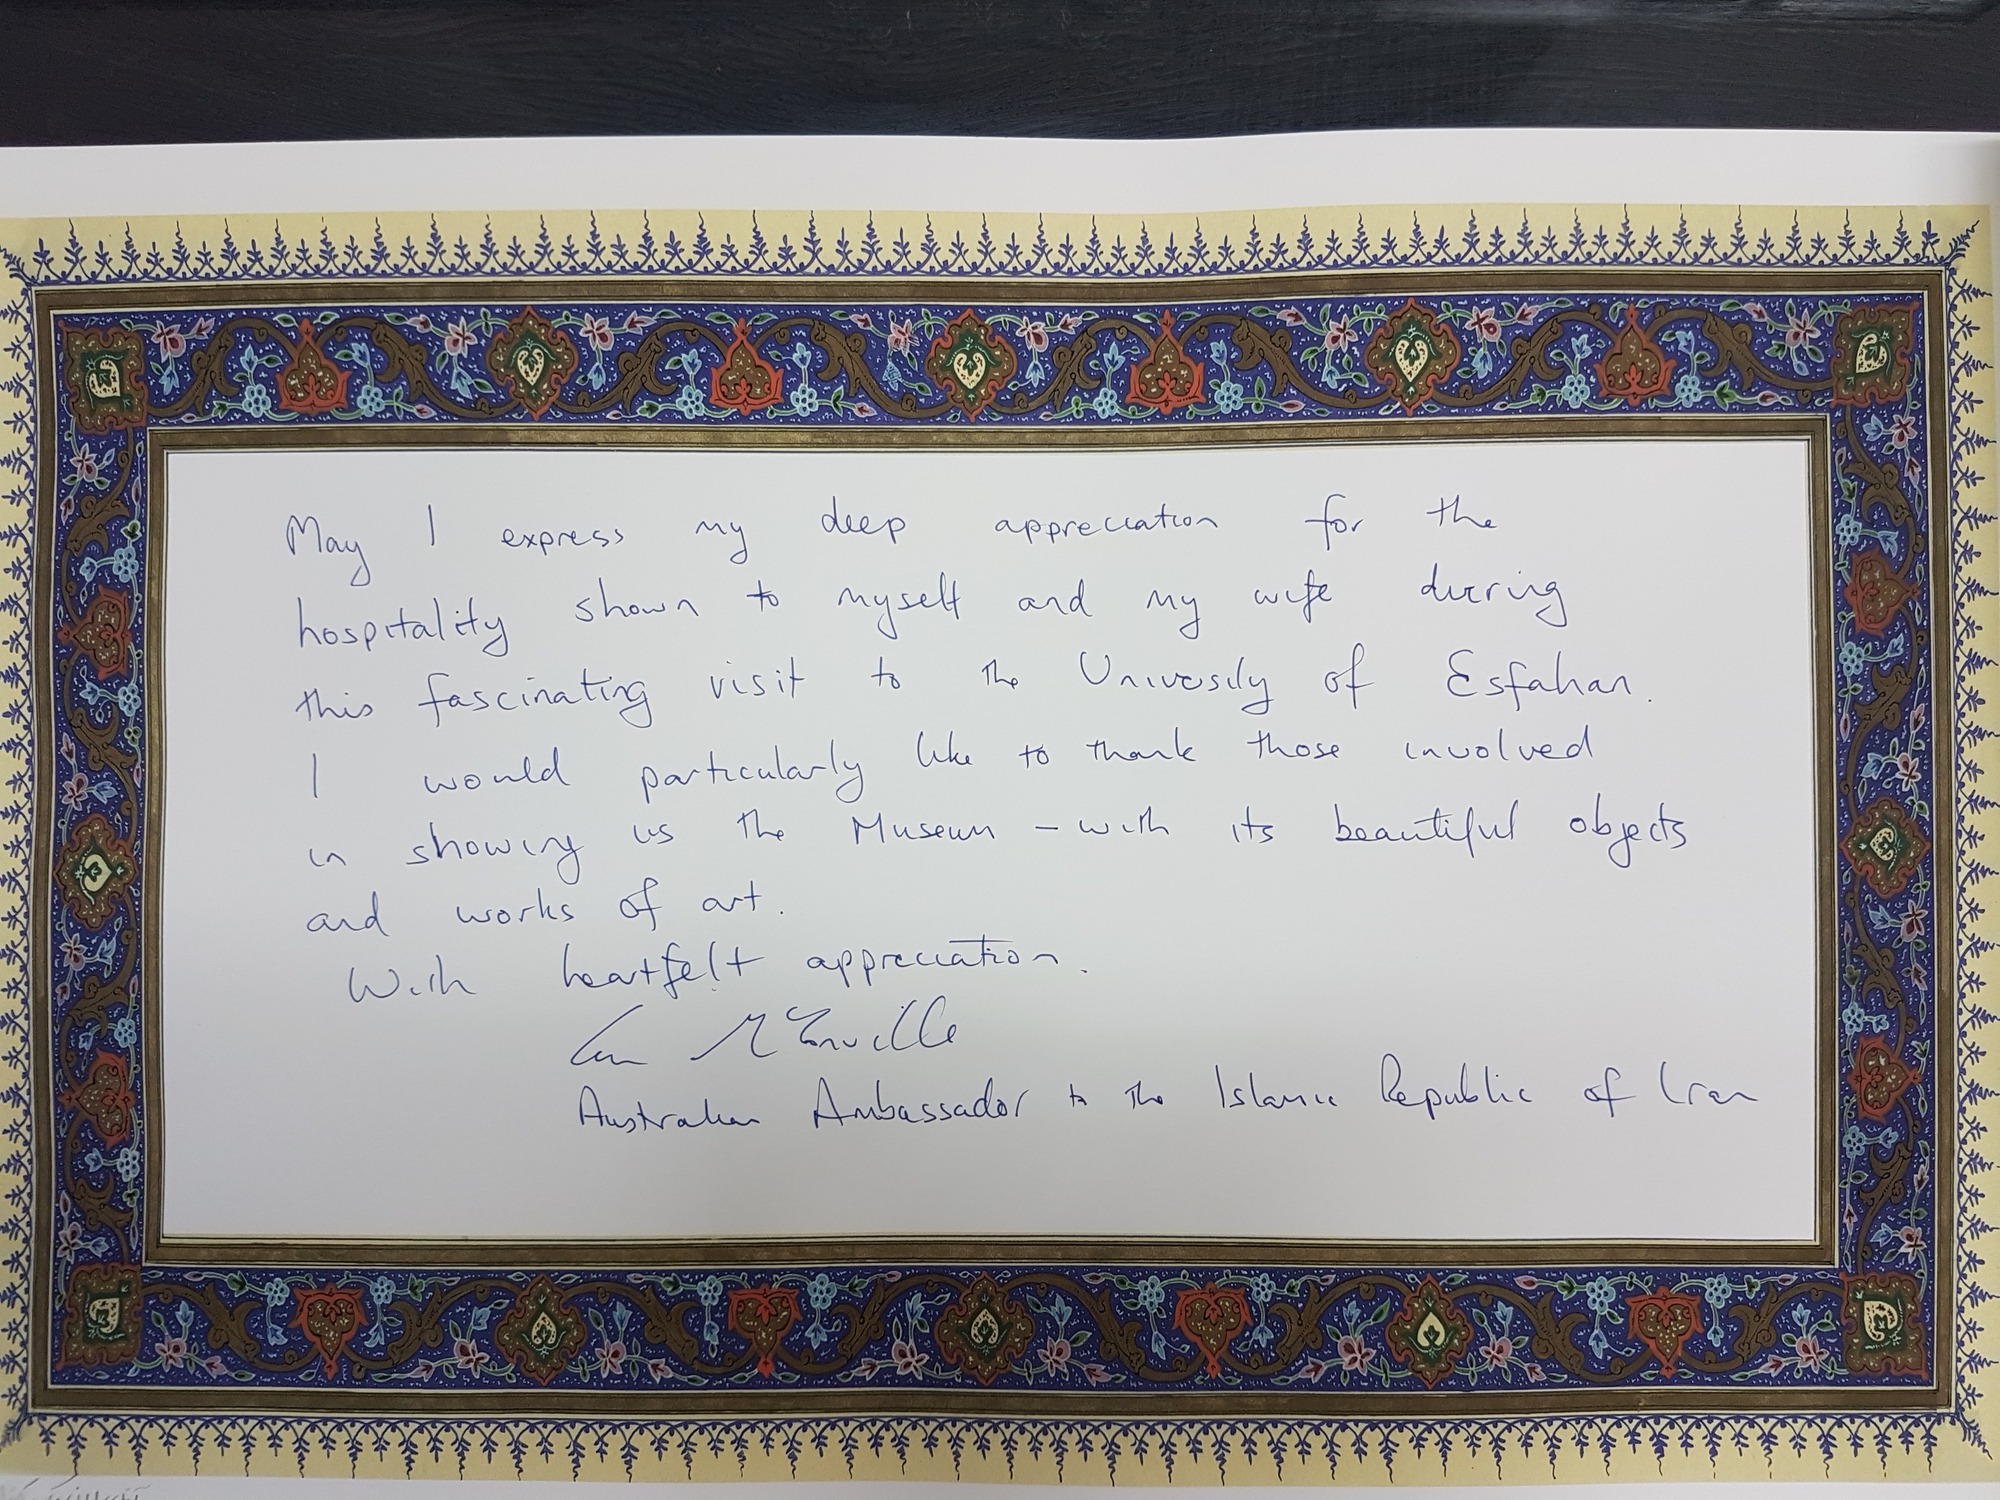 May I express my deep appreciation for the
hospitality shown to myself and my wife during
this fascinating visit to the University of Esfahan.
I would particularly like to thank those involved
in showing us the Museum - with its beautiful objects
and works of art.
With heartfelt appreciation.
Ian McConville
Australian Ambassador to the Islamic Republic of Iran